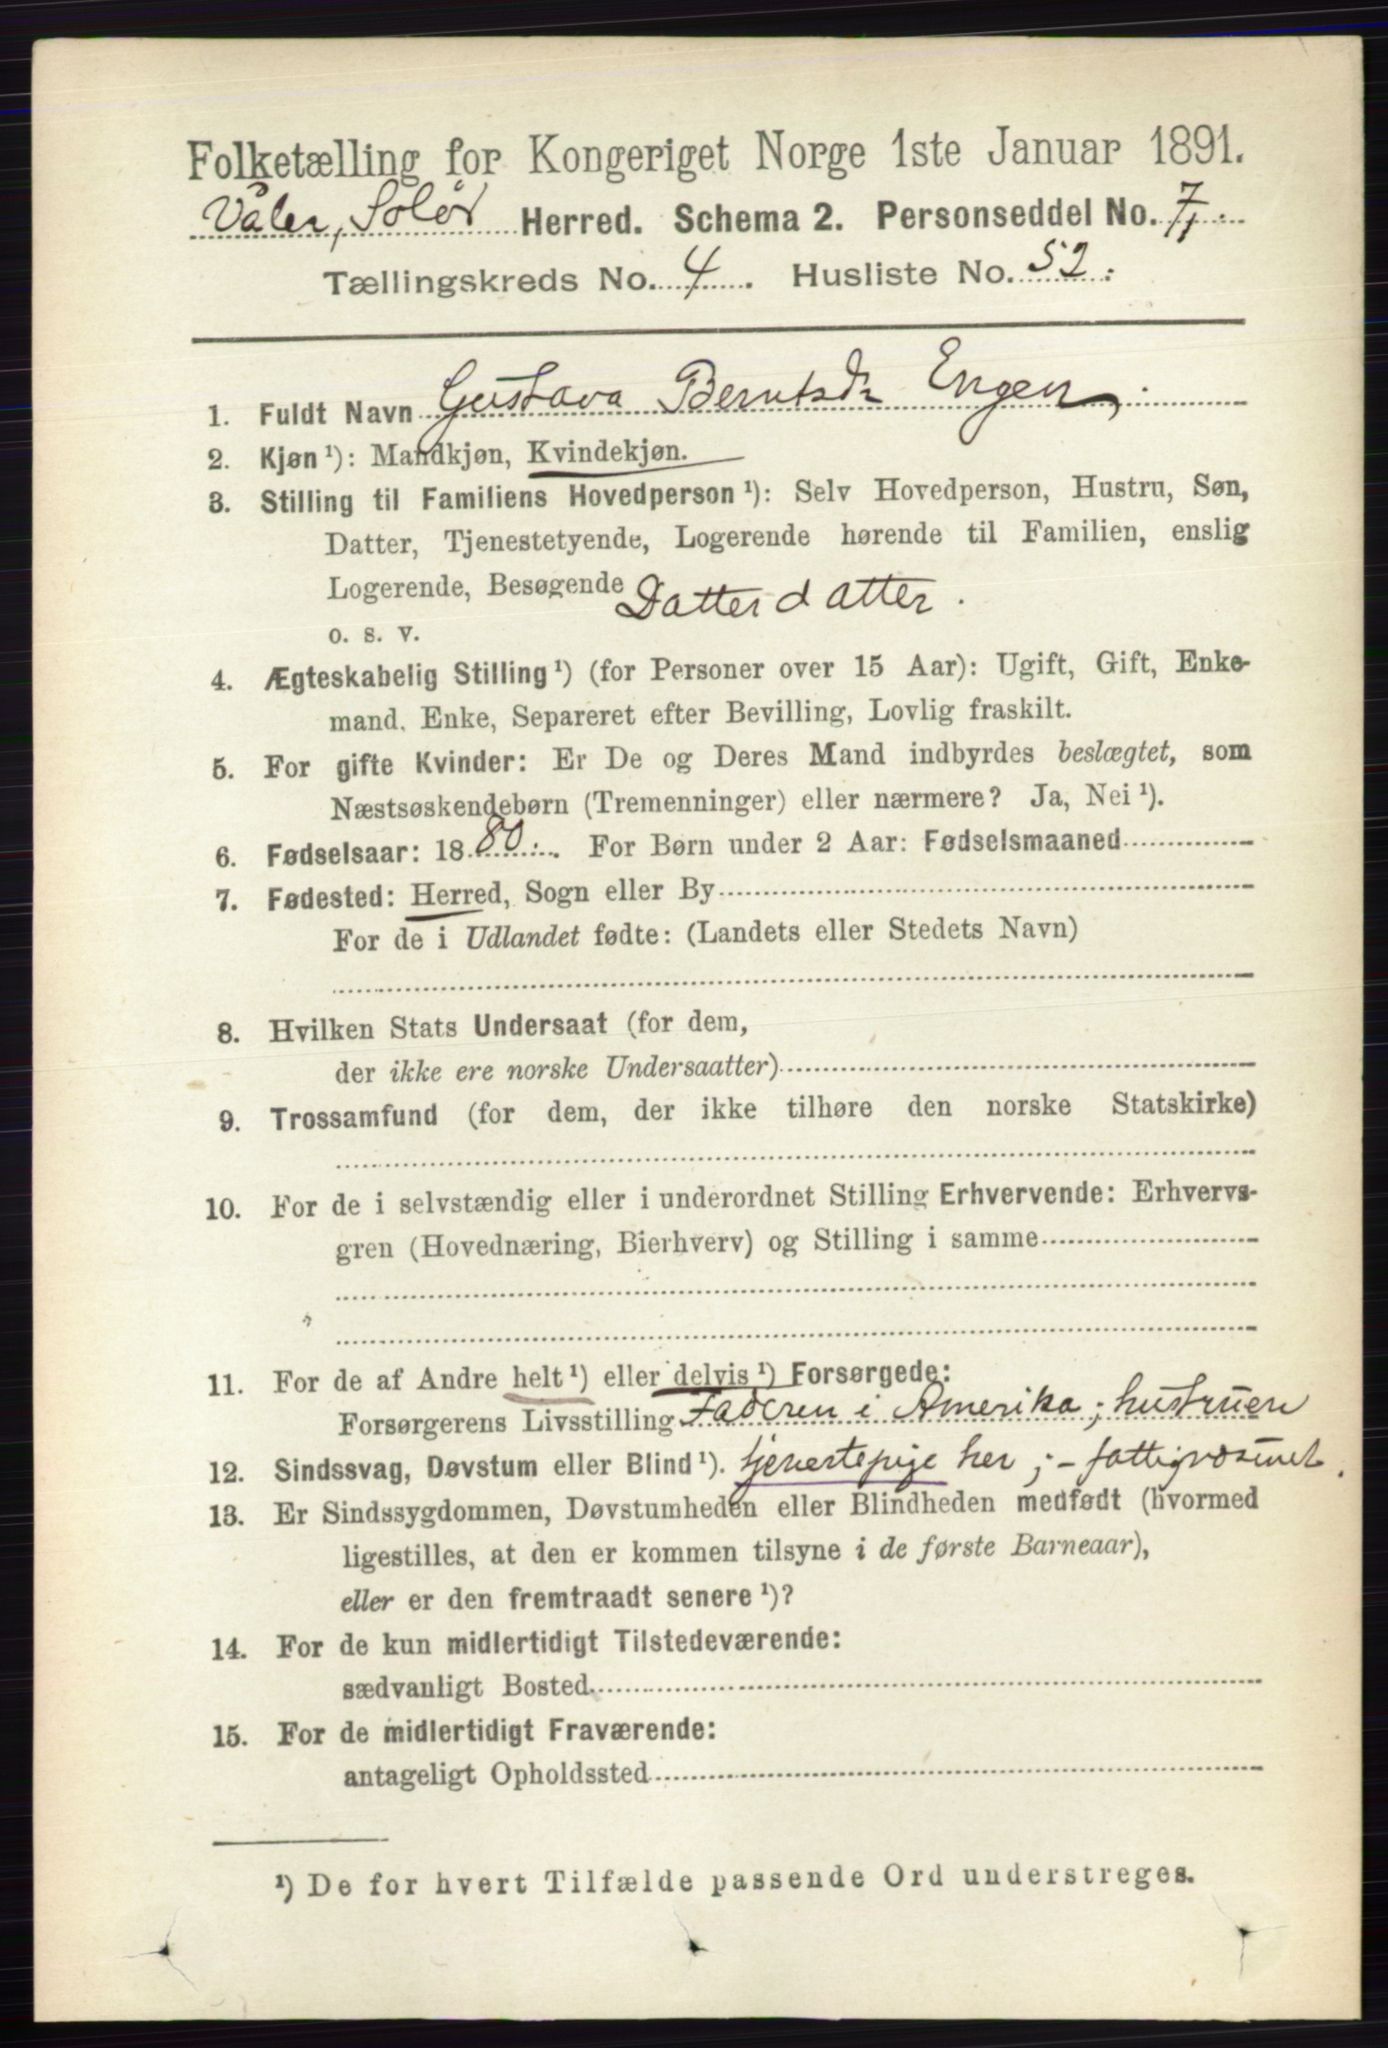 Folketælling for Kongeriget Norge 1ste Januar 1891.
Våler, Solør Herred. Schema 2. Personseddel No. 7.
Tællingskreds No. 4. Husliste No. 52.
1. Fuldt Navn Gustava Berntsdr Engen.
2. Kjøn ¹): Mandkjøn, Kvindekjøn.
3. Stilling til Familiens Hovedperson ¹): Selv Hovedperson, Hustru, Søn,
Datter, Tjenestetyende, Logerende hørende til Familien, enslig
Logerende, Besøgende Datterdatter.
o. s. v.
4. Ægteskabelig Stilling ¹) (for Personer over 15 Aar): Ugift, Gift, Enke-
mand. Enke, Separeret efter Bevilling, Lovlig fraskilt.
5. For gifte Kvinder: Er De og Deres Mand indbyrdes beslægtet, som
Næstsøskendebørn (Tremenninger) eller nærmere? Ja, Nei ¹).
6. Fødselsaar: 1880. For Børn under 2 Aar: Fødselsmaaned
7. Fødested: Herred, Sogn eller By
For de i Udlandet fødte: (Landets eller Stedets Navn)
8. Hvilken Stats Undersaat (for dem,
der ikke ere norske Undersaatter)
9. Trossamfund (for dem, der ikke tilhøre den norske Statskirke)
10. For de i selvstændig eller i underordnet Stilling Erhvervende: Erhvervs-
gren (Hovednæring, Bierhverv) og Stilling i samme
11. For de af Andre helt ¹) eller delvis ¹) Forsørgede:
Forsørgerens Livsstilling Faderen i Amerika; hustruen
12. Sindssvag, Døvstum eller Blind ¹). tjenestepige her; -
13. Er Sindssygdommen, Døvstumheden eller Blindheden medfødt (hvormed
ligestilles, at den er kommen tilsyne i de første Barneaar),
eller er den fremtraadt senere ¹)?
14. For de kun midlertidigt Tilstedeværende:
sædvanligt Bosted
15. For de midlertidigt Fraværende:
antageligt Opholdssted
¹) De for hvert Tilfælde passende Ord understreges.